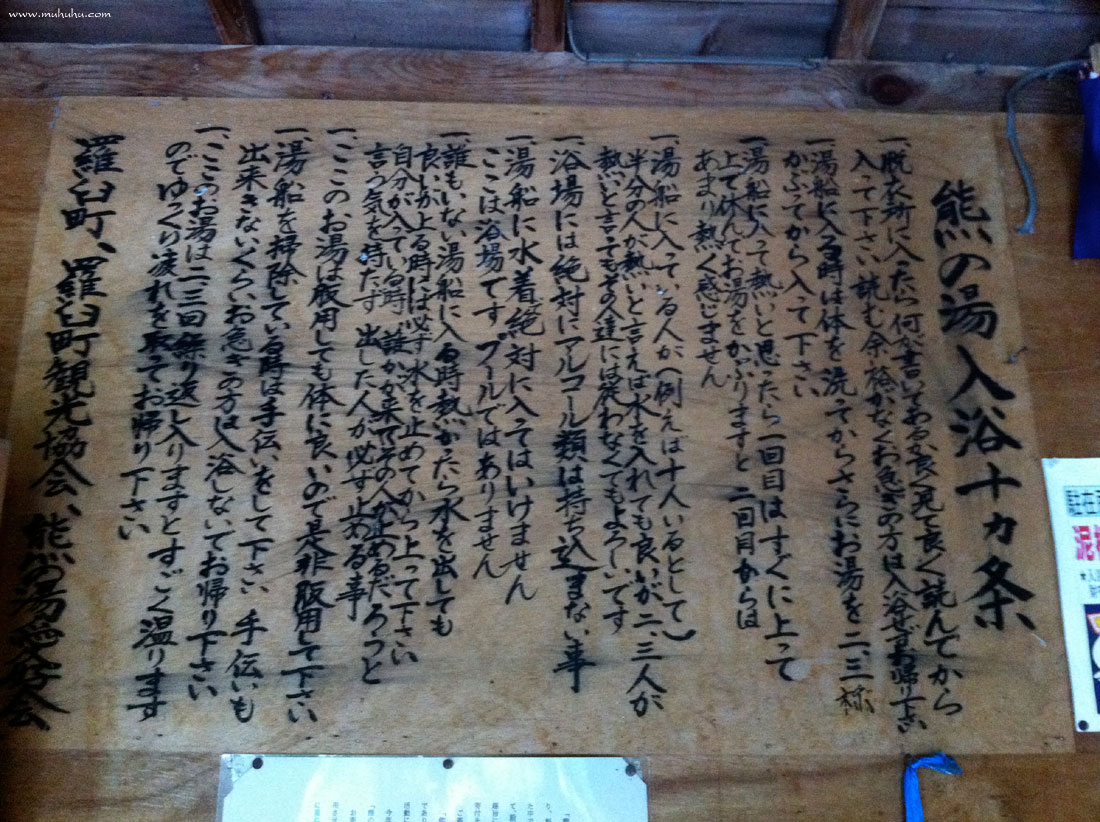 www.muhuhu.com
熊の湯入浴十カ条
一、脱衣所に入ったら何か書いてあるか良く見て良く読んでから
入って下さい 読む余裕がなくお急ぎの方は入浴せずお帰り下さい
一、湯船に入る時は体を洗ってからさらにお湯を二、三杯
かぶってから入って下さい
一、湯船に入って熱いと思たら一回目はすぐに上って
上で休んでお湯をかぶりますと二回目からは
あまり熱く感じません
一、湯船に入っている人が(例えば十人いるとして)
半分の人が熱いと言えば水を入れても良いが二、三人が
熱いと言ってもその人達には従わなくてもよろしいです
一、浴場には絶対にアルコール類は持ち込まない事
一、湯船に水着で絶対に入ってはいけません
ここは浴場です。プールではありません
一、誰もいない湯船に入る時熱かたら水を出しても
良いが上る時には必ず水を止めてから上って下さい
自分が入っている時、誰かが来てその人が止めるだろうと
言う気を持たず 出した人が必ず止める事
一、ここのお湯は服用しても体に良いので是非服用して下さい
一、湯船を掃除している時は手伝いをして下さい 手伝いも
出来きないぐらいお急ぎの方は入浴しないでお帰り下さい
一、ここのお湯は二、三回繰り返し入りますとすごく温ります
のでゆっくり疲れを取ってお帰り下さい
羅臼町、羅臼町観光協会、熊の湯愛好会
駐在
泥